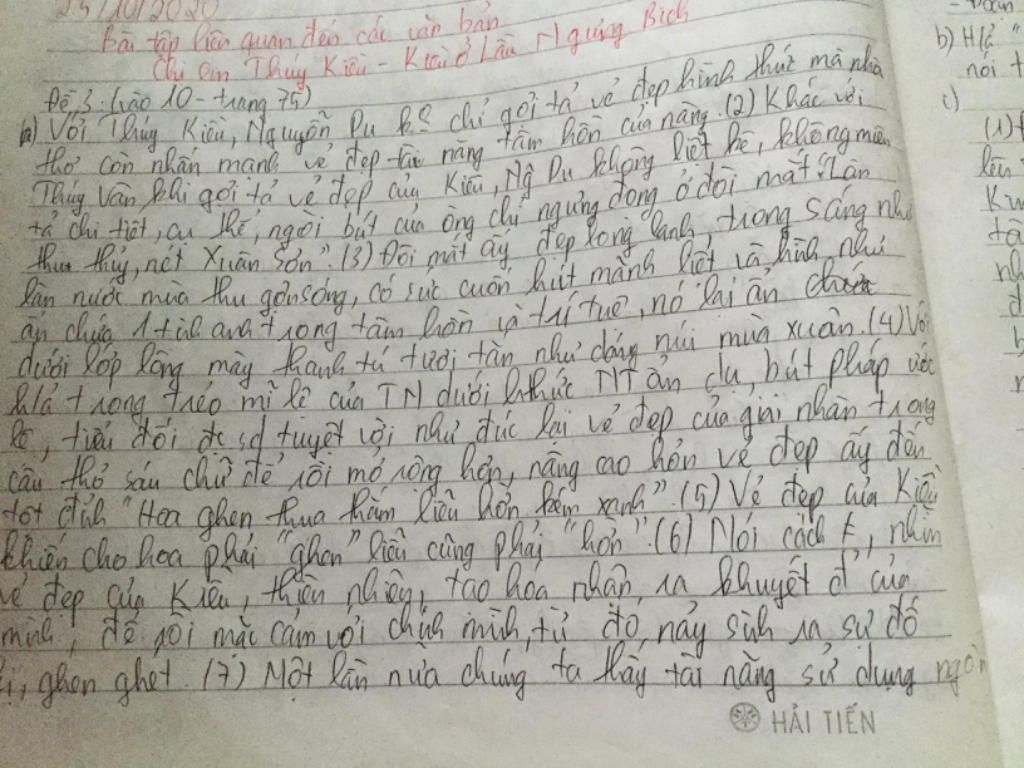 25/10/2020
Bài tập liên quan đến các văn bản
Chị em Thúy Kiều - Kiều ở Lầu Ngưng Bích
Đề 3: (vào 10 - trang 75)
a) Với Thúy Kiều, Nguyễn Du k? chỉ gợi tả vẻ đẹp hình thức mà nhà
thơ còn nhấn mạnh vẻ đẹp tài năng tâm hồn của nàng. (2) Khác với
Thúy Vân khi gợi tả vẻ đẹp của Kiều, Ng Du không liệt kê, không miêu
tả chi tiết, cụ thể, ngòi bút của ông chỉ ngưng đọng ở đôi mắt: "Làn
thu thủy, nét Xuân Sơn". (3) Đôi mắt ấy đẹp long lanh, trong sáng như
làn nước mùa thu gợn sóng, có sức cuốn hút mãnh liệt và hình như
ẩn chứa 1 tinh anh trong tâm hồn và trí tuệ, nó lại ẩn
dưới lớp lông mày thanh tú tươi tắn như dáng núi mùa xuân. (4) Với
trong trẻo mĩ lệ của TN dưới hthức NT ẩn dụ, bút pháp ước
lệ, tiểu đối đc sd tuyệt vời như đúc lại vẻ đẹp của giai nhân trong
câu thơ sáu chữ để rồi mở rộng hơn, nâng cao hơn vẻ đẹp ấy đến
tột đỉnh "Hoa ghen thua thắm liễu hờn kém xanh". (5) Vẻ đẹp của Kiều
khiến cho hoa phải "ghen" liễu cũng phải "hờn". (6) Nói cách ≠, nhìn
vẻ đẹp của Kiều, thiên nhiên, tạo hóa nhận ra khuyết đ' của
mình, để rồi mặc cảm với chính mình, từ đó nảy sinh ra sự đố
kị, ghen ghét. (7) Một lần nữa chúng ta thấy tài năng sử dụng ngôn
HẢI TIẾN
b) Hlà "
nói t
c)
(1)
lên